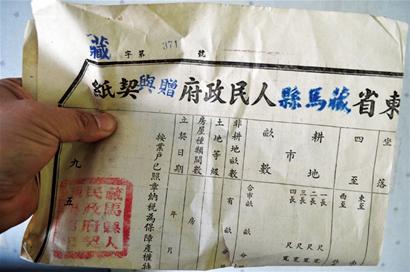 藏字第371號
東省藏馬縣人民政府贈與契紙
坐落
四至
東至
西至
耕地
市
畝數
一長 尺寬
二長 尺寬
三長 尺
四長 尺
合市畝
有 畝 分
非耕地畝數
土地等級
房屋種類間數
房
立契日期
年 月
按業戶已照章納稅為保障產權特
九五
藏馬縣人
民政府契